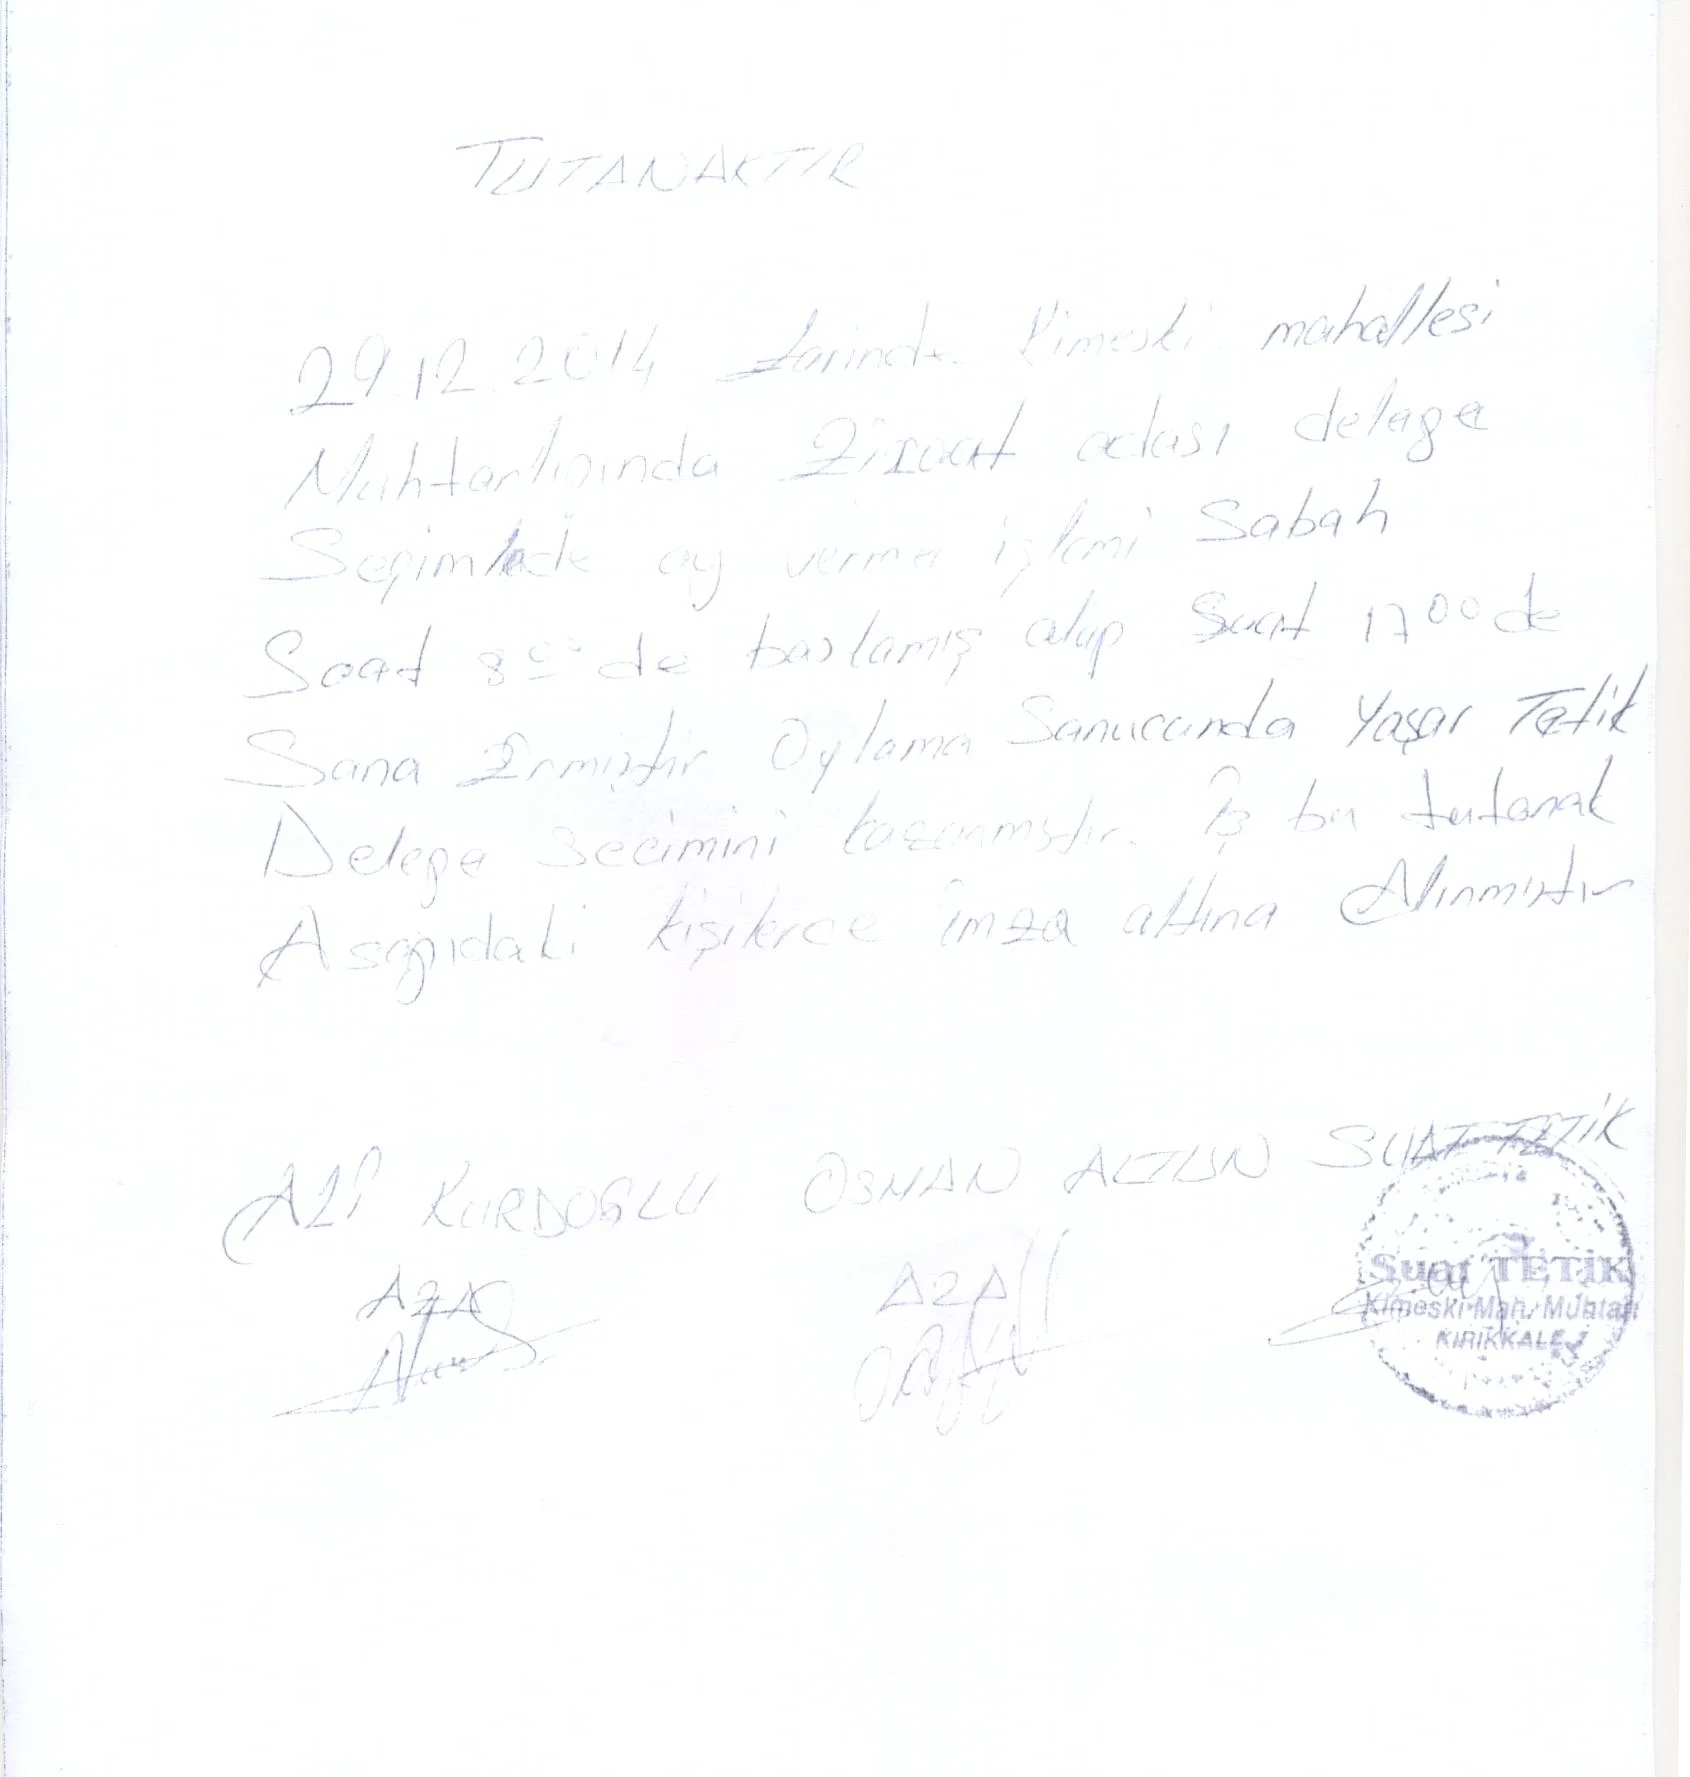 TUTANAKTIR
29.12.2014 tarinde Kimeski mahallesi
Muhtarlığında Ziraat odası delege
Seçimlede oy verme işlemi Sabah
Saat 8⁰⁰ de baslamış olup Saat 17⁰⁰ de
Sona Ermiştir Oylama Sonucunda Yaşar Tetik
Delege Secimini kazanmıştır. İş bu tutanak
Asağıdaki kişilerce imza altına Alınmıştır
ALİ KURDOGLU OSMAN ALTUN SUAT TETİK
AZA AZA
Suat TETİK
Kimeski Mah. Muhtarı
KIRIKKALE